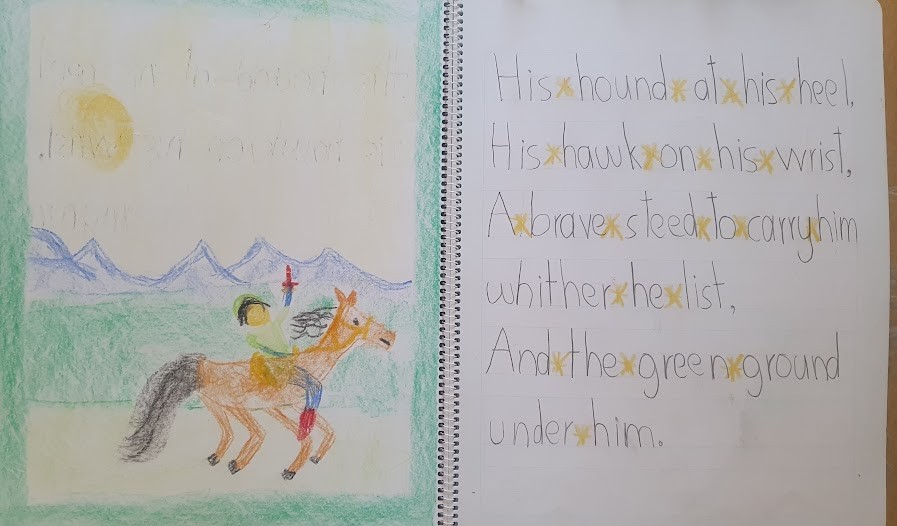 His hound at his heel,
His hawk on his wrist,
A brave steed to carry him
whither he list,
And the green ground
under him.